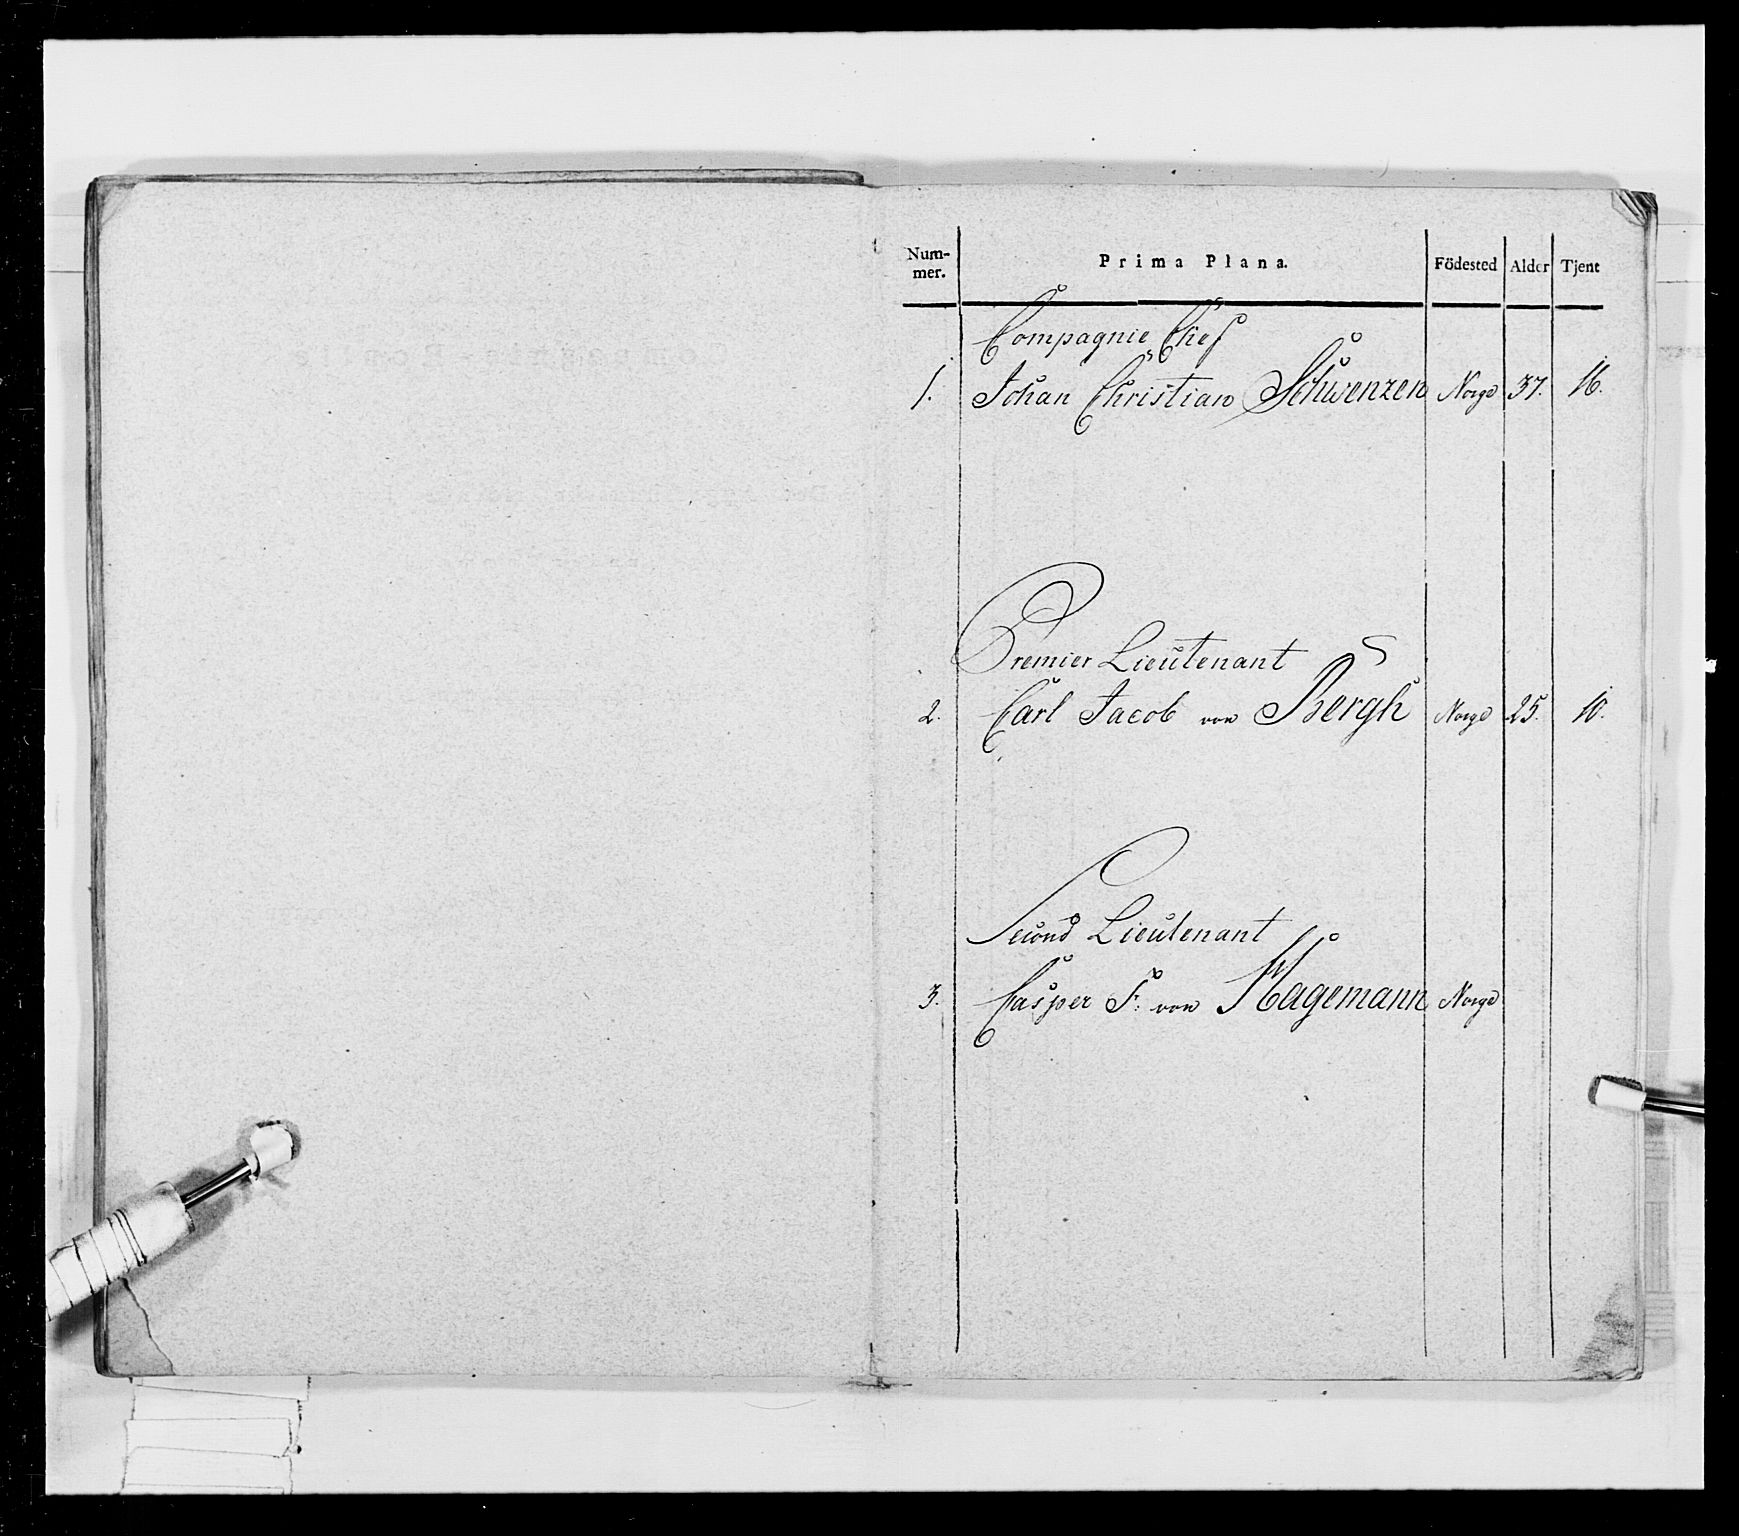 Num-
mer.
Prima Plana. Födested Alder Tjent
Compagnie Chef
1. Johan Christian Schwenzen Norge 37. 16.
Premier Lieutenant
2. Carl Jacob von Bergh Norge 25. 10.
Second Lieutenant
3. Casper F: von Hagemann Norge